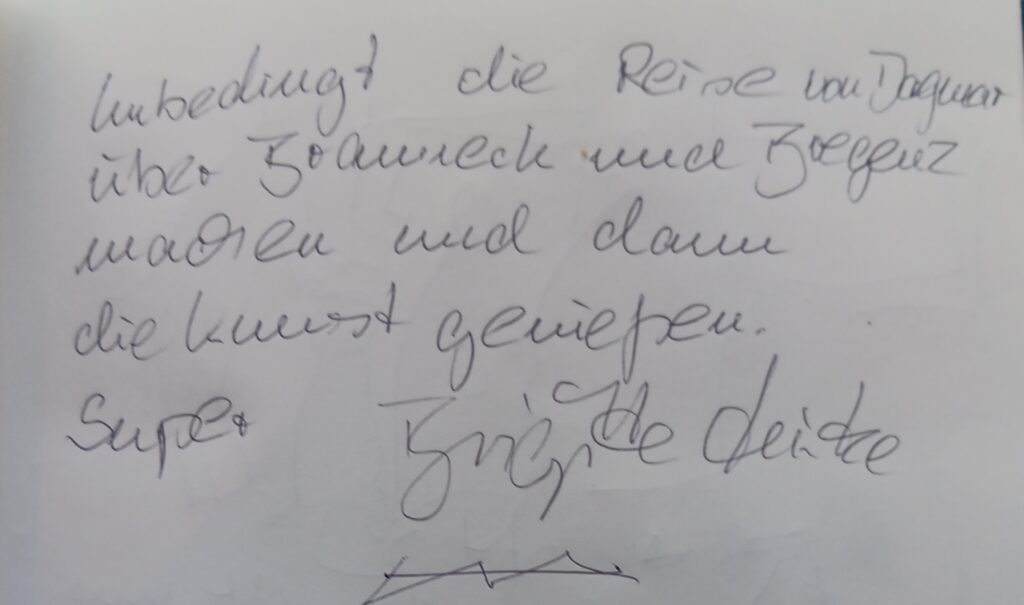 unbedingt die Reise von Dagmar
über und Bregenz
machen und dann
die Kunst genießen.
Super Brigitte